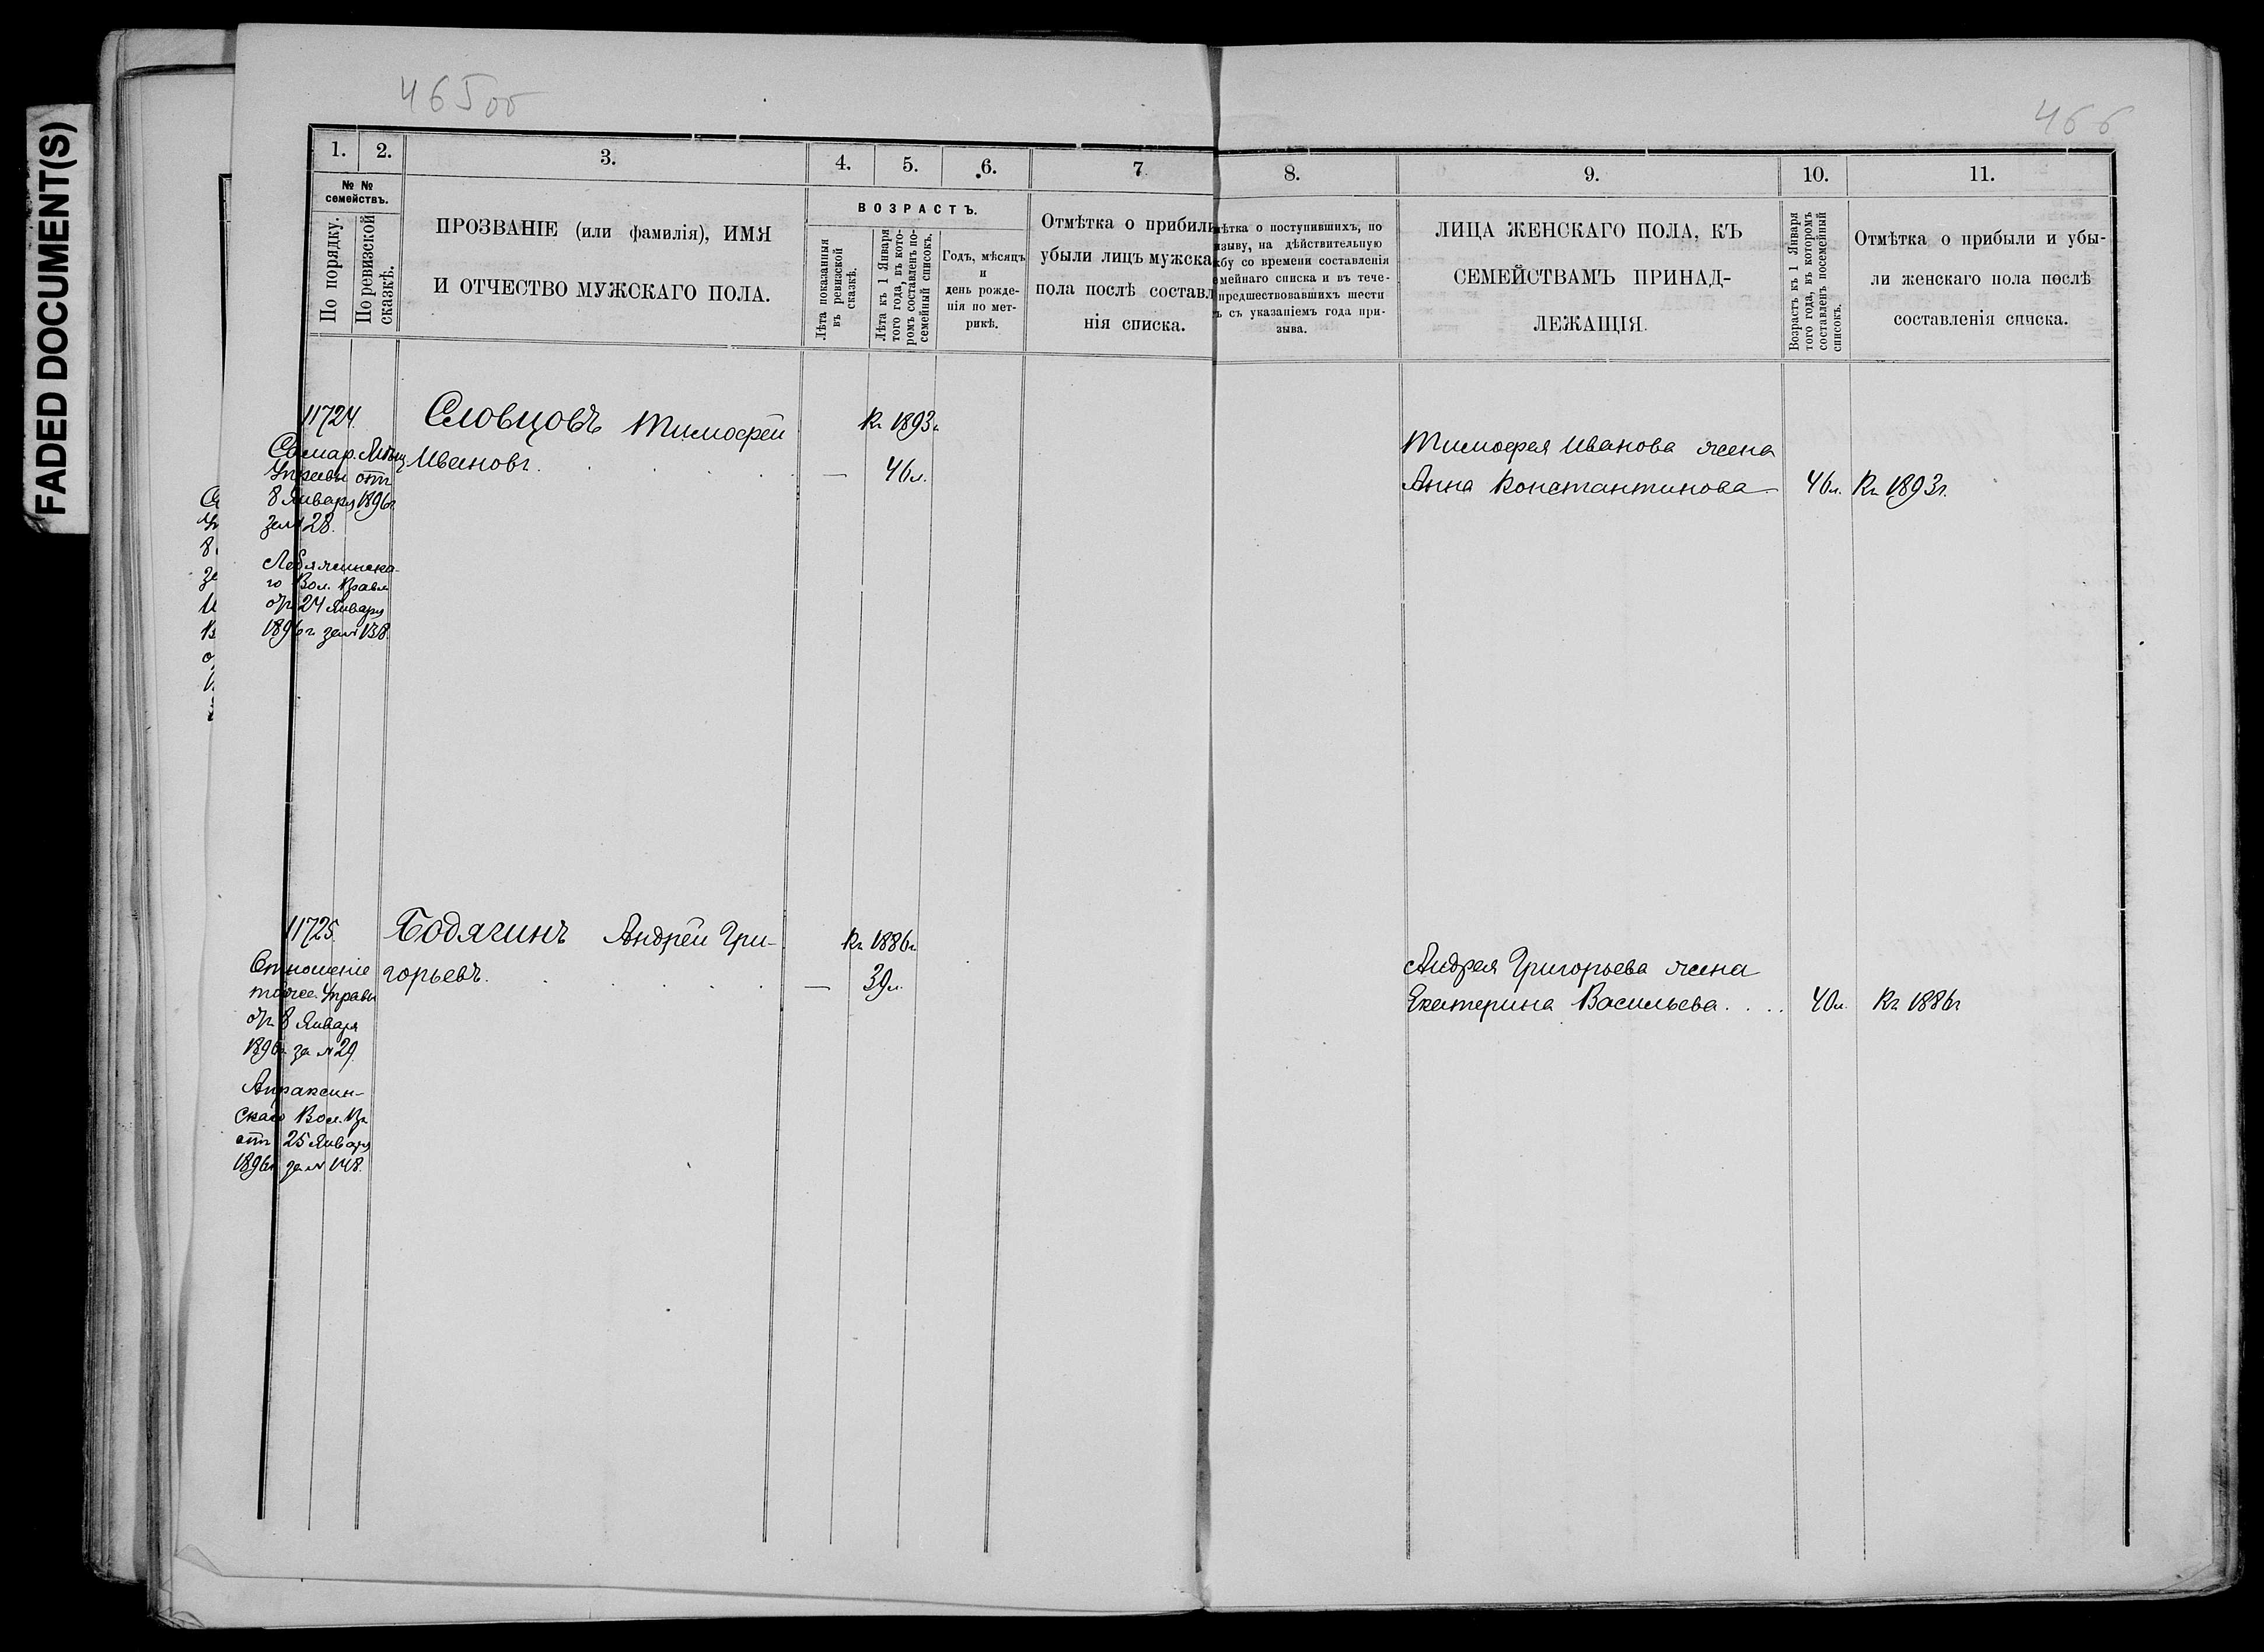 FADED DOCUMENT(S)
465об
466
1. 2. 3. 4. 5. 6. 7
№ №
семействъ.
По порядку.
По ревизской
сказкѣ.
ПРОЗВАНІЕ (или фамилія), ИМЯ
И ОТЧЕСТВО МУЖСКАГО ПОЛА.
ВОЗРАСТЪ.
Лѣта показанныя
въ ревизской
сказкѣ.
Лѣта къ 1 Января
того года, въ кото-
ромъ составленъ по-
семейный списокъ.
Годъ, мѣсяцъ
и
день рожде-
нія по мет-
рикѣ.
Отмѣтка о прибыли
убыли лицъ мужска
пола послѣ составл
нія списка.
8. 9. 10. 11.
мѣтка о поступившихъ, по
изыву, на дѣйствительную
жбу со времени составленія
емейнаго списка и въ тече-
предшествовавшихъ шести
ъ съ указаніемъ года при-
зыва.
ЛИЦА ЖЕНСКАГО ПОЛА, КЪ
СЕМЕЙСТВАМЪ ПРИНАД-
ЛЕЖАЩІЯ.
Возрастъ къ 1 Января
того года, въ которомъ
составленъ посемейный
списокъ.
Отмѣтка о прибыли и убы-
ли женскаго пола послѣ
составленія списка.
11724.
Самар. Мѣщ
Управы отъ
8 Января 1896г.
за № 28.
Лебяжинска-
го Вол. Правл
отъ 24 Января
1896г за № 138.
Словцовъ Тимофей
Ивановъ. — 46л.
Къ 1893г
Тимофея Иванова жена
Анна Константинова 46л. Къ 1893г.
11725.
Отношеніе
тойже Управы
отъ 8 Января
1896г за № 29.
Апраксин-
скаго Вол. Пр
отъ 25 Января
1896г за № 148.
Бодягинъ Андрей Гри-
горьевъ. — 39л.
Къ 1886г
Андрея Григорьева жена
Екатерина Васильева.... 40л. Къ 1886г